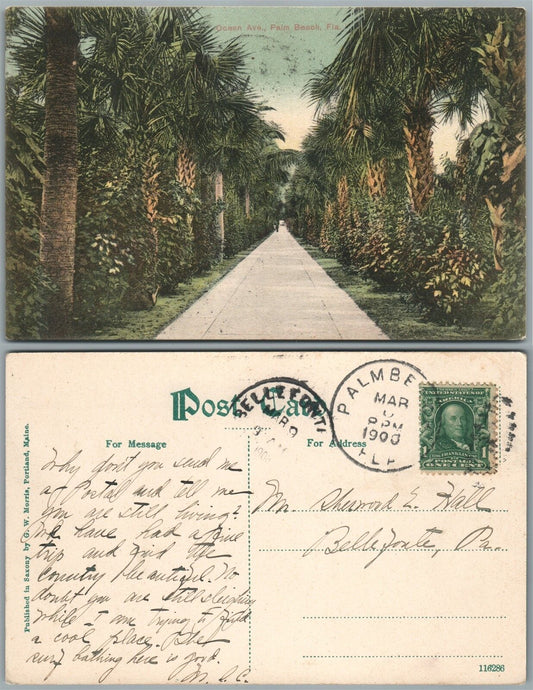 Ocean Ave., Palm Beach, Fla.
Post Card
BELLEFONT
MAR 9
PALM BE
MAR
PM
1908
FLA
UNITED STATES OF
AMERICA
FRANKLIN
POSTAGE
ONE CENT
For Message
For Address
Why don't you send me
a Postal and tell me
you are still living?
We have had a fine
trip and find the
country beautiful. No
doubt you are still sleighing
while I am trying to find
a cool place. The
surf bathing here is good.
M. S. C.
Mr. Sherwood E. Hall
Bellefonte, Pa.
Published in Saxony by G. W. Morris, Portland, Maine.
116286